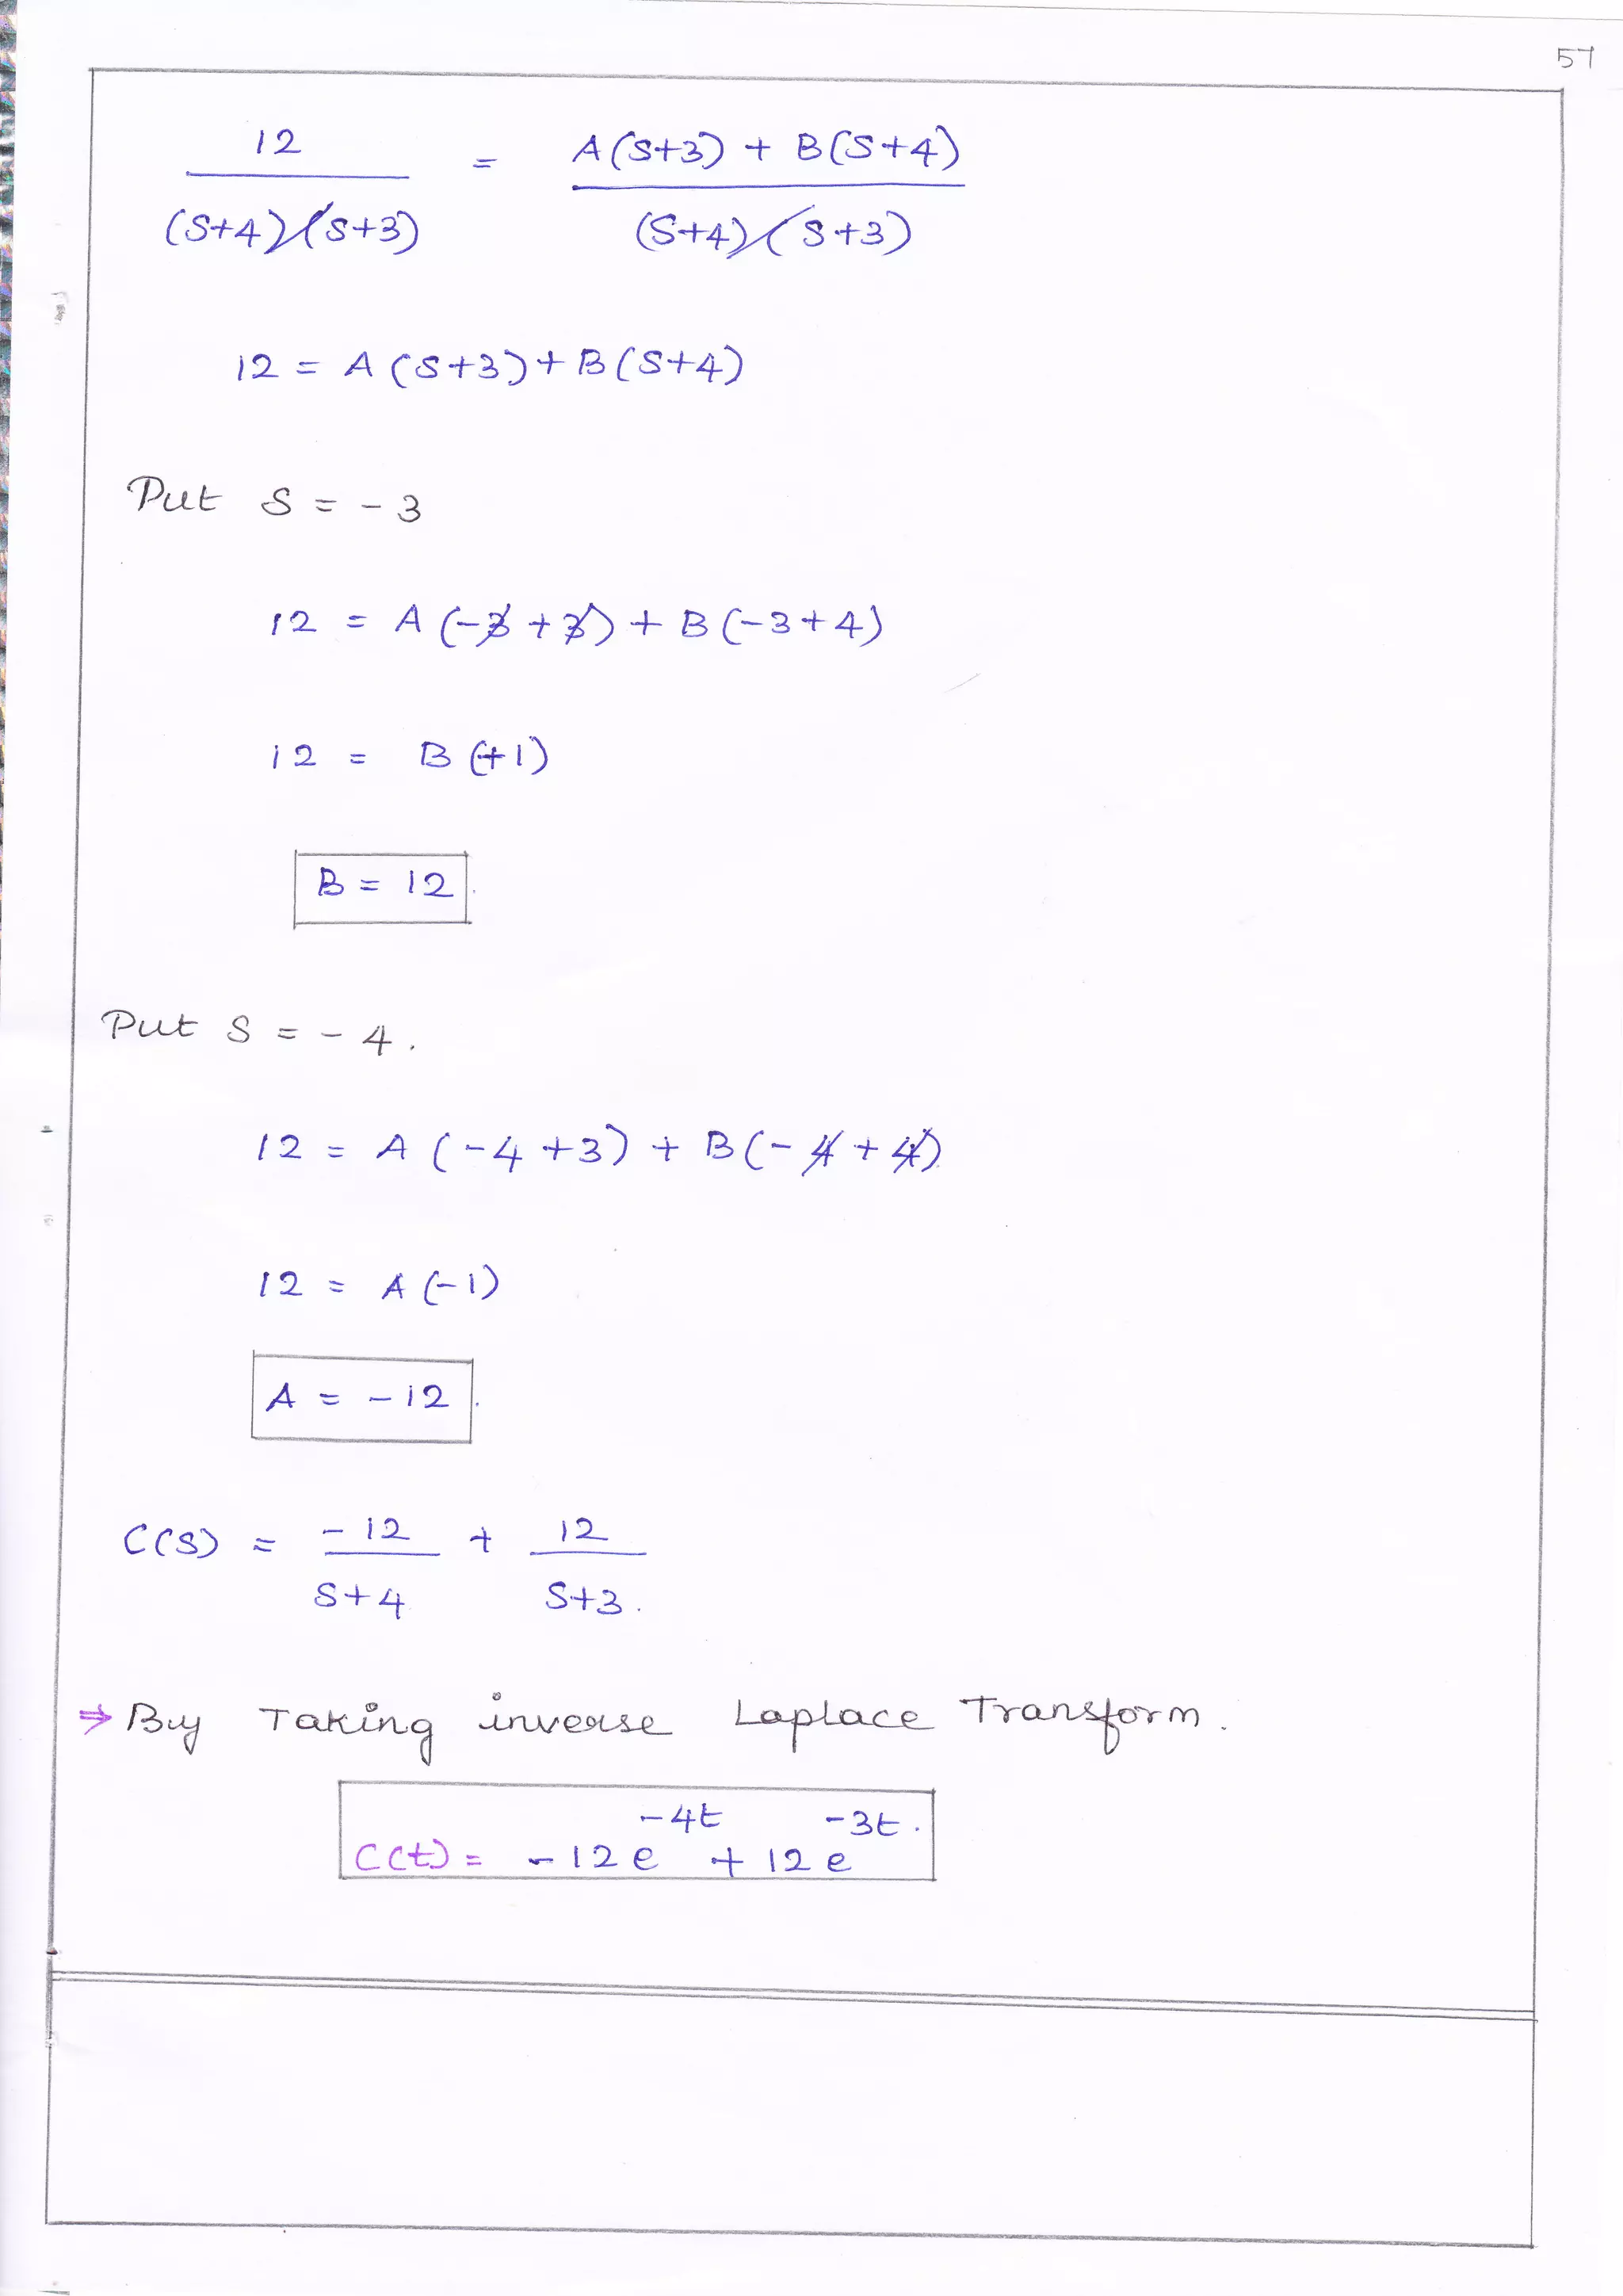 57
12 / (S+4)(S+3) = A(S+3) + B(S+4) / (S+4)(S+3)
12 = A(S+3)+B(S+4)
Put S = -3
12 = A(-3+3) + B(-3+4)
12 = B(+1)
B = 12.
Put S = -4.
12 = A(-4+3) + B(-4+4).
12 = A(-1)
A = -12.
C(S) = -12 / S+4 + 12 / S+3.
⇒ By Taking inverse Laplace Transform.
C(t) = -12e^-4t + 12e^-3t.